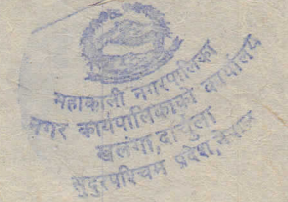 महाकाली नगरपालिका
नगर कार्यपालिकाको कार्यालय
खलंगा, दार्चुला
सुदुरपश्चिम प्रदेश, नेपाल